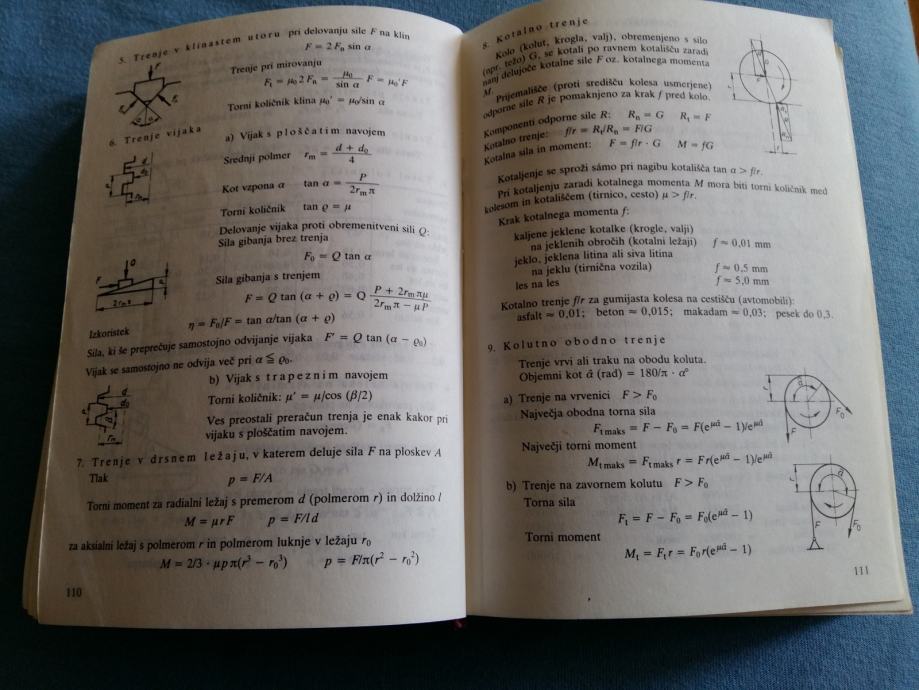 5. Trenje v klinastem utoru pri delovanju sile F na klin
F = 2 Fn sin α
Trenje pri mirovanju
Ft = μ0 2 Fn = μ0/sin α F = μ0'F
Torni količnik klina μ0' = μ0/sin α
6. Trenje vijaka
a) Vijak s ploščatim navojem
Srednji polmer rm = (d + d0)/4
Kot vzpona α tan α = P/(2 rm π)
Torni količnik tan ϱ = μ
Delovanje vijaka proti obremenitveni sili Q:
Sila gibanja brez trenja
F0 = Q tan α
Sila gibanja s trenjem
F = Q tan (α + ϱ) = Q (P + 2rm πμ)/(2rm π − μP)
Izkoristek η = F0/F = tan α/tan (α + ϱ)
Sila, ki še preprečuje samostojno odvijanje vijaka F' = Q tan (α − ϱ0)
Vijak se samostojno ne odvija več pri α ≦ ϱ0.
b) Vijak s trapeznim navojem
Torni količnik: μ' = μ/cos (β/2)
Ves preostali preračun trenja je enak kakor pri
vijaku s ploščatim navojem.
7. Trenje v drsnem ležaju, v katerem deluje sila F na ploskev A
Tlak p = F/A
Torni moment za radialni ležaj s premerom d (polmerom r) in dolžino l
M = μrF p = F/ld
za aksialni ležaj s polmerom r in polmerom luknje v ležaju r0
M = 2/3 · μpπ(r³ − r0³) p = F/π(r² − r0²)
110
8. Kotalno trenje
Kolo (kolut, krogla, valj), obremenjeno s silo
(npr. težo) G, se kotali po ravnem kotališču zaradi
nanj delujoče kotalne sile F oz. kotalnega momenta
M.
Prijemališče (proti središču kolesa usmerjene)
odporne sile R je pomaknjeno za krak f pred kolo.
Komponenti odporne sile R: Rn = G Rt = F
Kotalno trenje: f/r = Rt/Rn = F/G
Kotalna sila in moment: F = f/r · G M = fG
Kotaljenje se sproži sámo pri nagibu kotališča tan α > f/r.
Pri kotaljenju zaradi kotalnega momenta M mora biti torni količnik med
kolesom in kotališčem (tirnico, cesto) μ > f/r.
Krak kotalnega momenta f:
kaljene jeklene kotalke (krogle, valji)
na jeklenih obročih (kotalni ležaji) f ≈ 0,01 mm
jeklo, jeklena litina ali siva litina
na jeklu (tirnična vozila) f ≈ 0,5 mm
les na les f ≈ 5,0 mm
Kotalno trenje f/r za gumijasta kolesa na cestišču (avtomobili):
asfalt ≈ 0,01; beton ≈ 0,015; makadam ≈ 0,03; pesek do 0,3.
9. Kolutno obodno trenje
Trenje vrvi ali traku na obodu koluta.
Objemni kot â (rad) = 180/π · α°
a) Trenje na vrvenici F > F0
Največja obodna torna sila
Ft maks = F − F0 = F(e^μâ − 1)/e^μâ
Največji torni moment
Mt maks = Ft maks r = Fr(e^μâ − 1)/e^μâ
b) Trenje na zavornem kolutu F > F0
Torna sila
Ft = F − F0 = F0(e^μâ − 1)
Torni moment
Mt = Ft r = F0 r(e^μâ − 1)
111